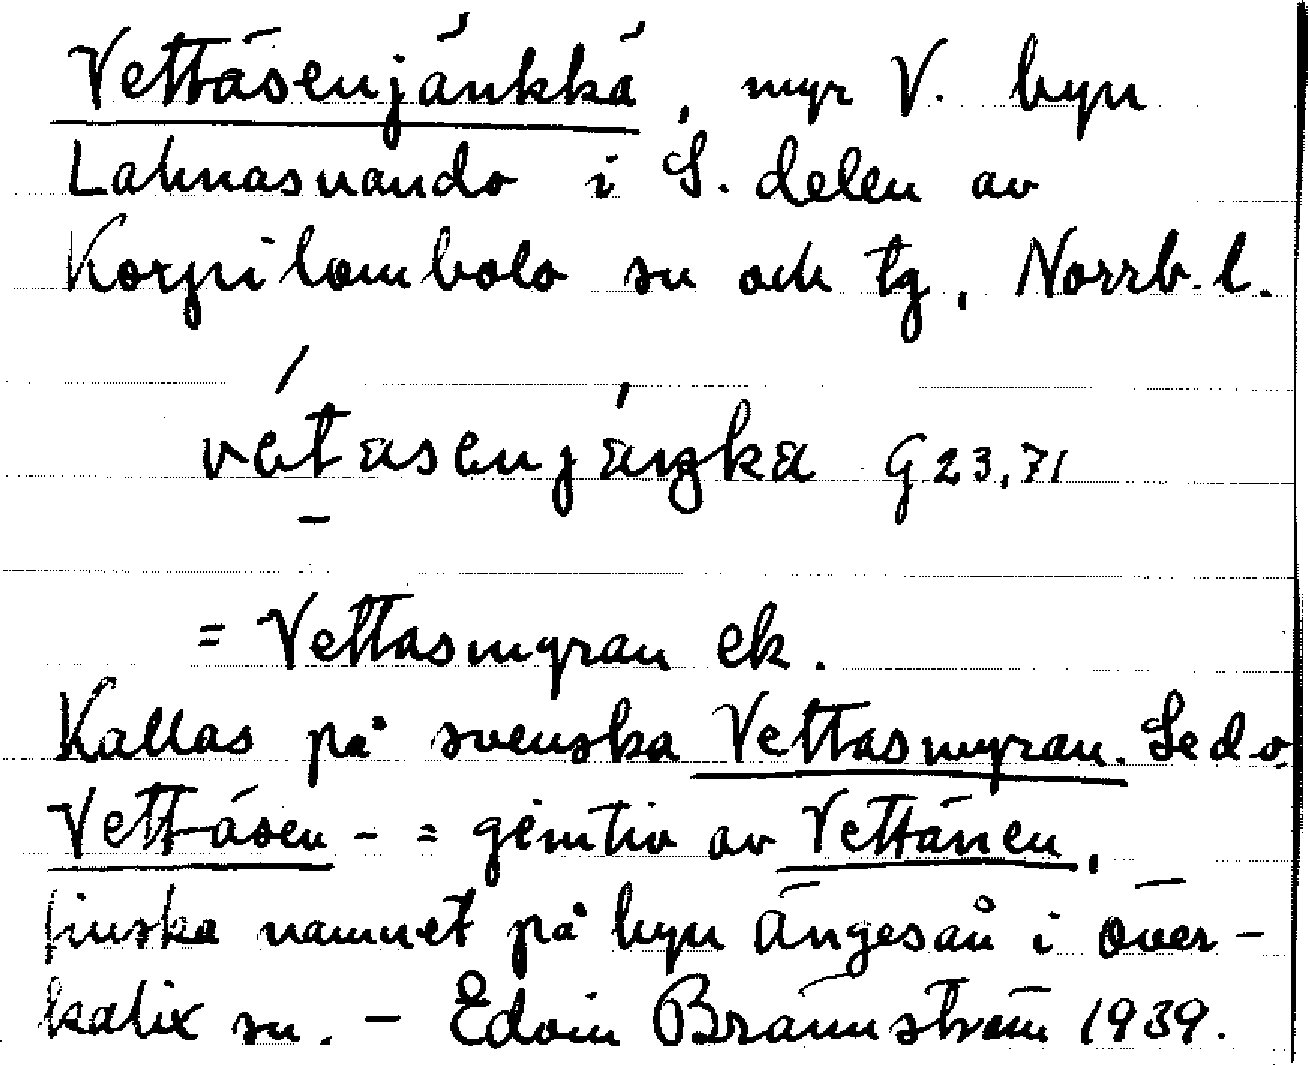 Vettäsenjänkkä, myr V. byn
Lahnasuando i S. delen av
Korpilombolo sn och tg, Norrb. l.
vétäsenjäŋkä G23,71
= Vettasmyran ek.
Kallas på svenska Vettasmyran. Se d.o.
Vettäsen - = genitiv av Vettänen,
finska namnet på byn Ängeså i Över-
kalix sn. - Edvin Brännström 1939.